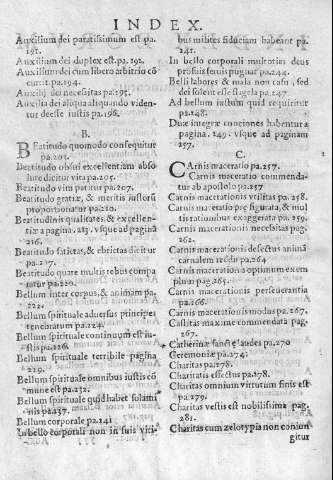 INDEX.
Auxilium dei paratissimum est pa.
191.
Auxilium dei duplex est pa. 192.
Auxilium dei cum libero arbitrio cõ
currit pa. 194.
Auxilij dei necessitas pa. 195.
Auxilia dei aliqua aliquando viden
tur deesse iustis pa. 196.
B.
BEatitudo quomodo consequitur
pa. 203.
Beatitudo obsui excellentiam abso
lute dicitur vita pa. 205.
Beatitudo vim patitur pa. 207.
Beatitudo gratiæ, & meritis iustorũ
proportionatur pa. 210.
Beatitudinis qualitates & excellen-
tiæ a pagina. 213. vsque ad paginã
216.
Beatitudo satietas, & ebrietas dicitur
pa. 217.
Beatitudo quare multis rebus compa
ratur pa. 220.
Bellum inter corpus, & animam pa.
222.
Bellum spirituale aduersus principes
tenebrarum pa. 224.
Bellum spirituale continuum est iu-
stis pa. 226.
Bellum spirituale terribile pagina
229.
Bellum spirituale omnibus iustis cõ
mune est pa. 232.
Bellum spirituale quid habet solami
nis pa. 237.
Bellum corporale pa. 241
In bello corporali non in suis viri-
bus milites fiduciam habeant pa.
241.
In bello corporali multoties deus
pro suis seruis pugnat pa. 244.
Belli labores & mala non casu, sed
dei solent esse flagela pa. 247
Ad bellum iustum quid requiritur
pa. 248.
Duæ integræ conciones habentur a
pagina. 249. vsque ad paginam
257.
C.
CArnis maceratio pa. 257.
Carnis maceratio commenda-
tur ab apostolo pa. 257
Carnis macerationis vtilitas pa. 258.
Carnis maceratio præfigurata, & mul
tis rationibus exaggerata pa. 259.
Carnis macerationis necessitas pag.
262.
Carnis macerationis defectus animã
carnalem reddit pa. 264
Carnis macerationis optimum exem
plum pag. 265.
Carnis macerationis perseuerantia
pa. 266.
Carnis macerationis modus pa. 267.
Castitas maxime commendata pag.
267.
Catherinæ sanctę laudes pa. 270
Ceremoniæ pa. 274:
Charitas pa. 278.
Charitatis effectus pa. 278.
Charitas omnium virtutum finis est
pa. 279.
Charitas vestis est nobilissima pag.
281.
Charitas cum zelotypia non coniun
gitur